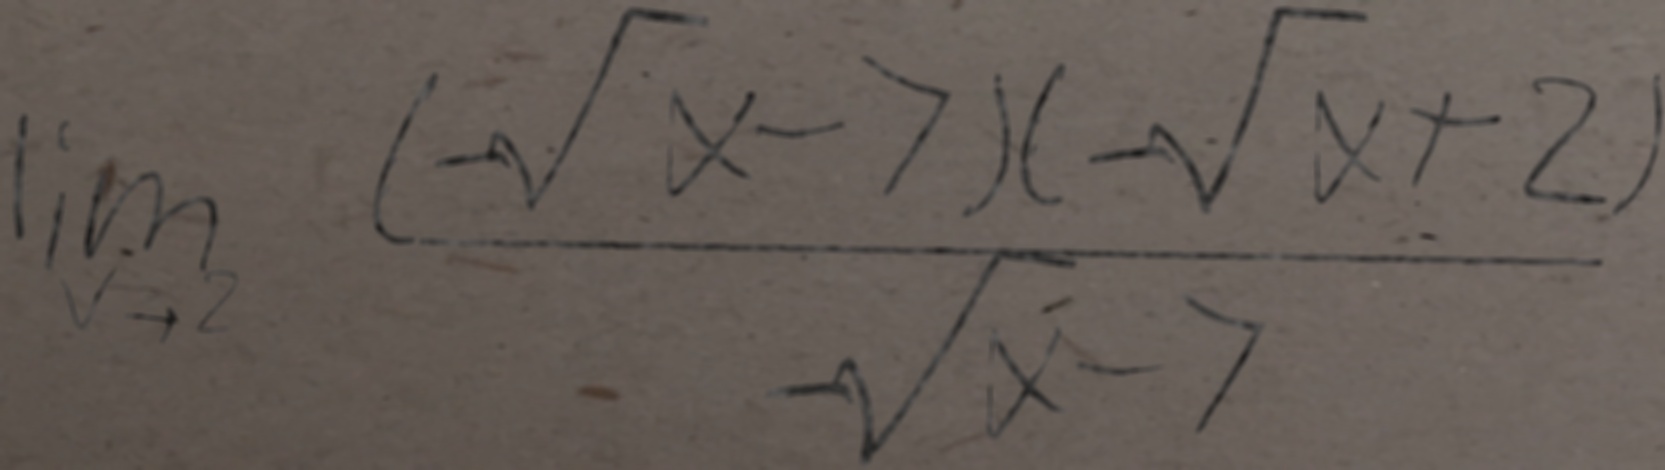 lim_{v→2} \frac{(-\sqrt{x}-7)(-\sqrt{x}+2)}{-\sqrt{x}-7}